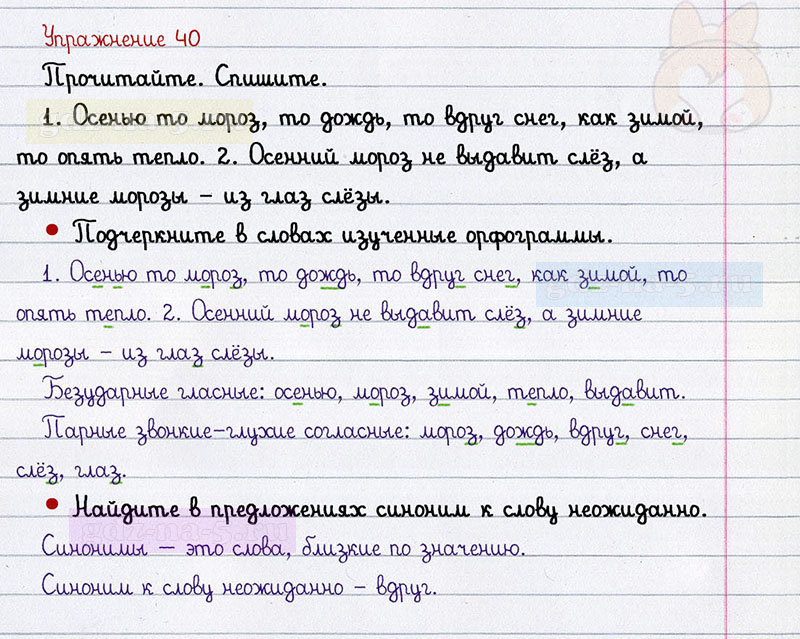 Упражнение 40
Прочитайте. Спишите.
1. Осенью то мороз, то дождь, то вдруг снег, как зимой,
то опять тепло. 2. Осенний мороз не выдавит слёз, а
зимние морозы – из глаз слёзы.
• Подчеркните в словах изученные орфограммы.
1. Осенью то мороз, то дождь, то вдруг снег, как зимой, то
опять тепло. 2. Осенний мороз не выдавит слёз, а зимние
морозы – из глаз слёзы.
Безударные гласные: осенью, мороз, зимой, тепло, выдавит.
Парные звонкие-глухие согласные: мороз, дождь, вдруг, снег,
слёз, глаз.
• Найдите в предложениях синоним к слову неожиданно.
gdz-na-5.ru
Синонимы – это слова, близкие по значению.
Синоним к слову неожиданно – вдруг.